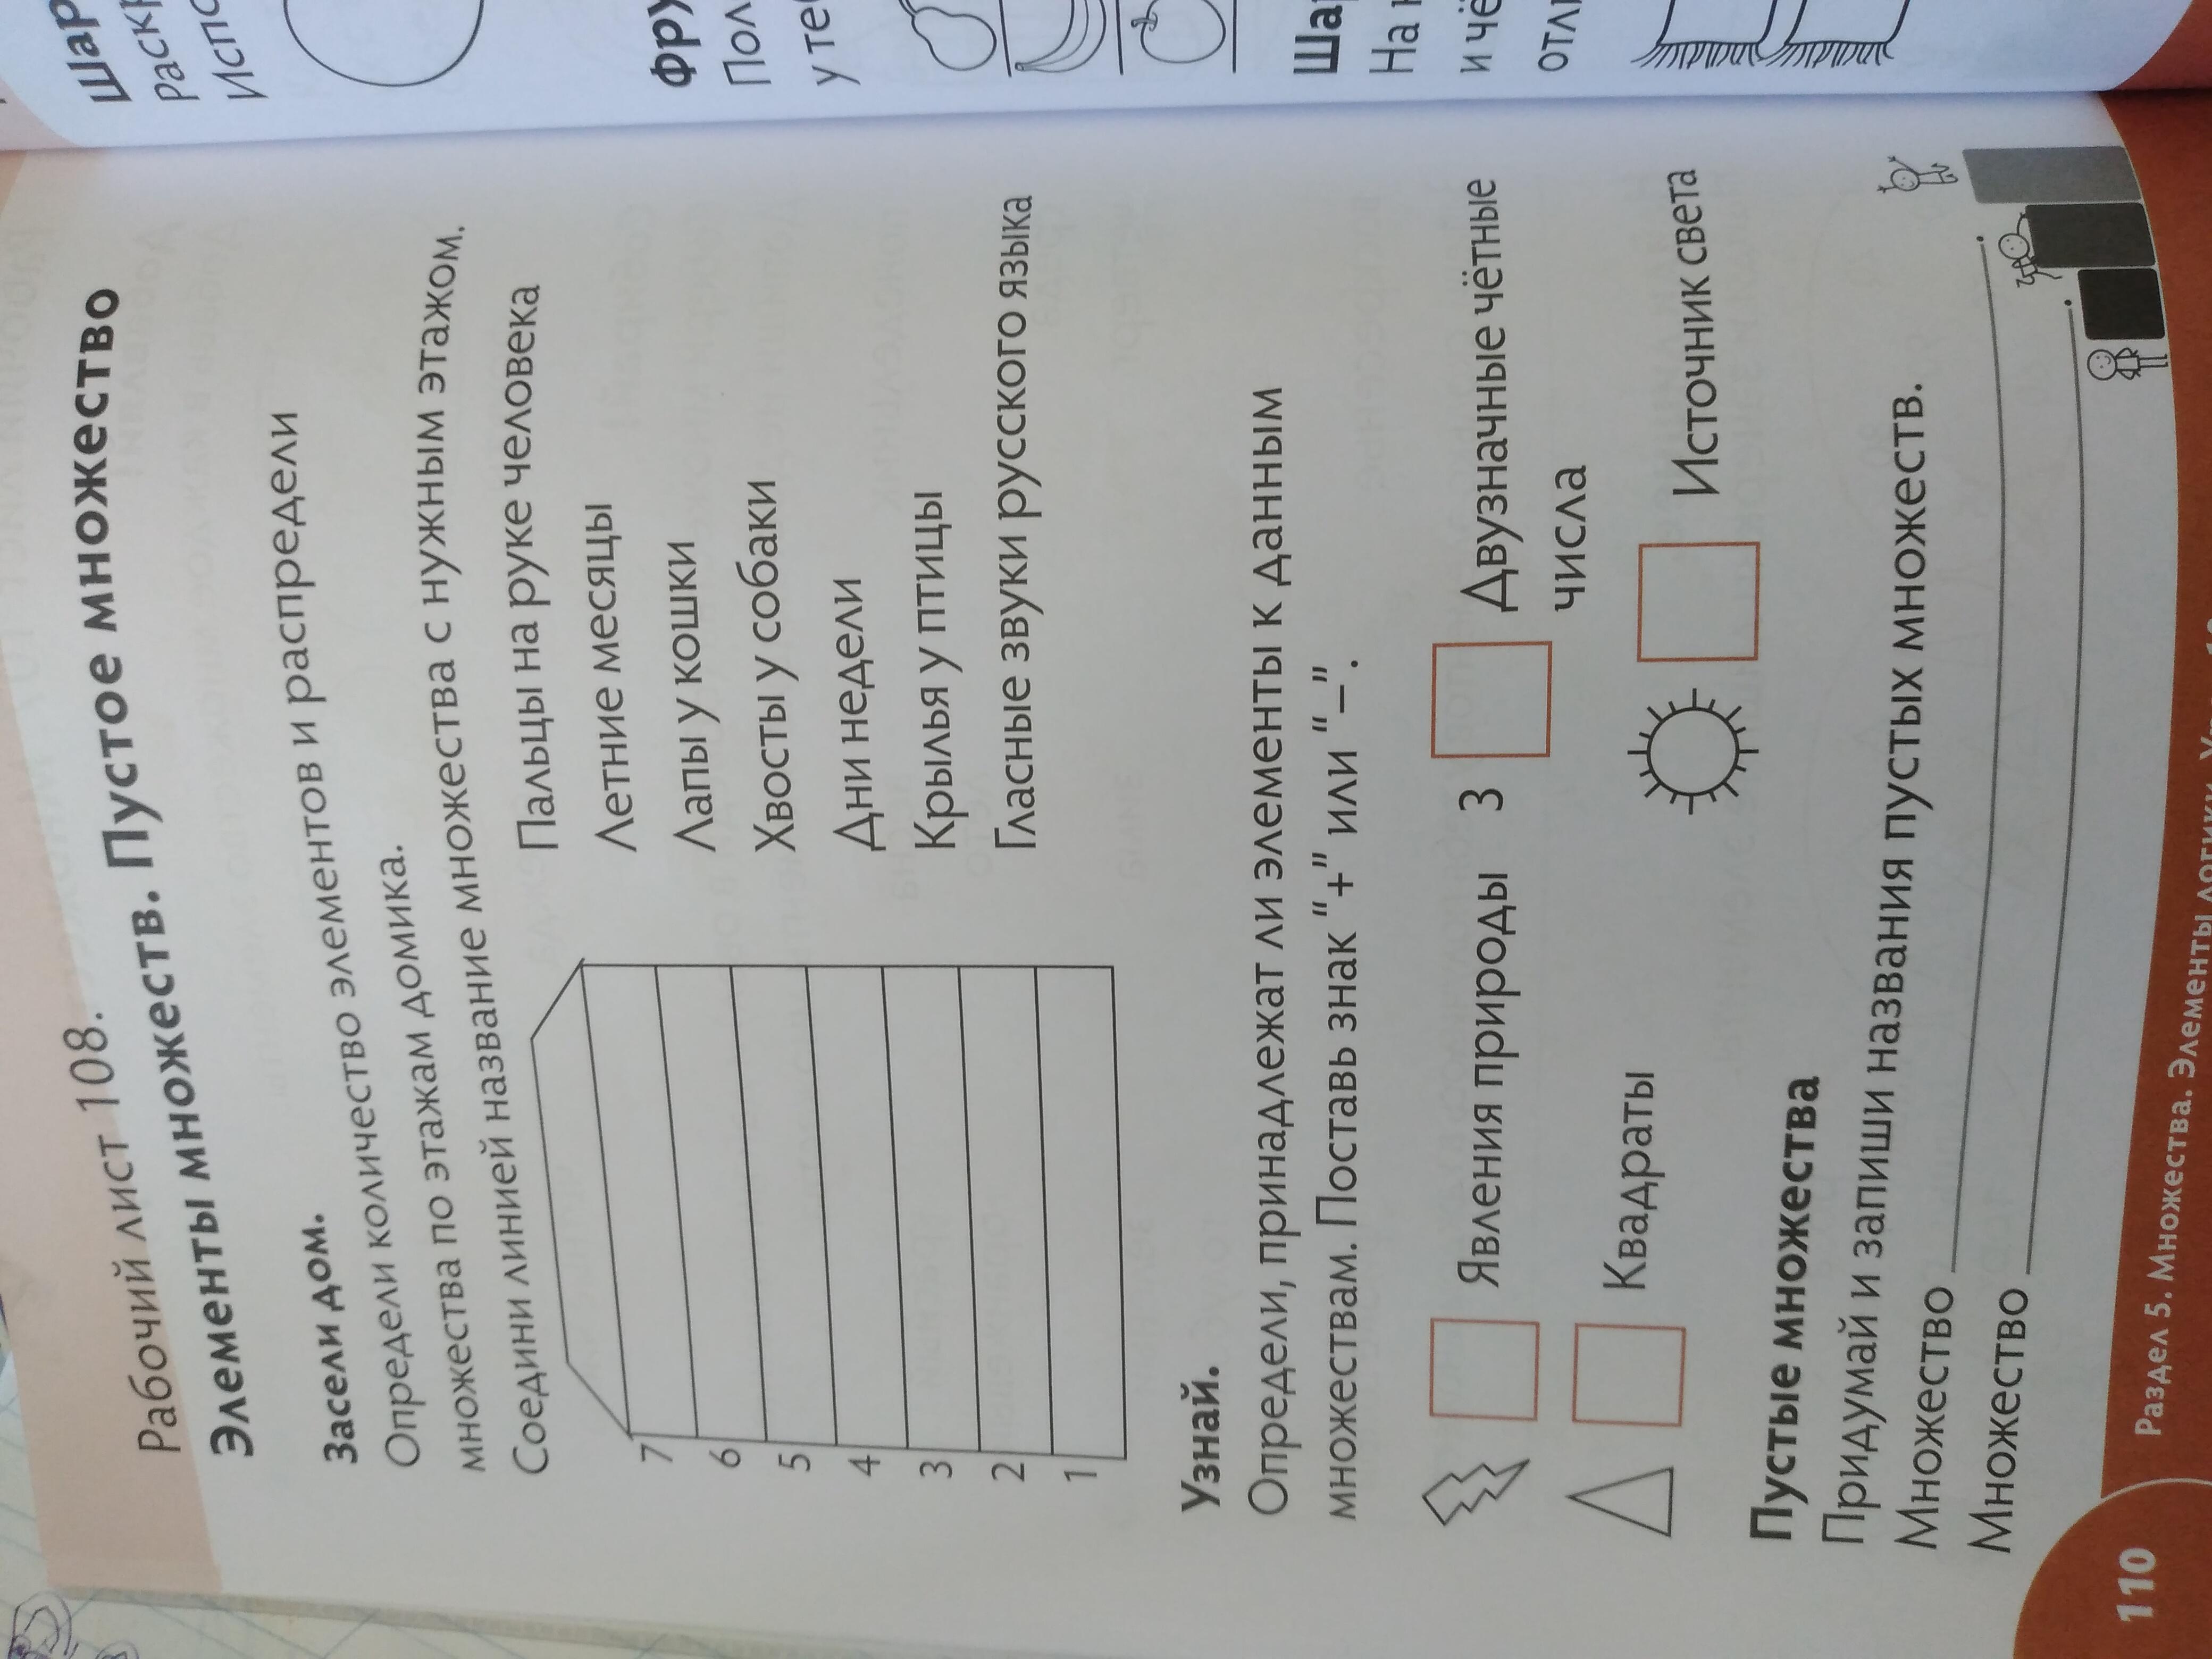 Рабочий лист 108.
Элементы множеств. Пустое множество
Засели дом.
Определи количество элементов и распредели
множества по этажам домика.
Соедини линией название множества с нужным этажом.
Пальцы на руке человека
7 Летние месяцы
6 Лапы у кошки
5 Хвосты у собаки
4 Дни недели
3 Крылья у птицы
2 Гласные звуки русского языка
1
Узнай.
Определи, принадлежат ли элементы к данным
множествам. Поставь знак “+” или “–”.
Явления природы 3 Двузначные чётные
числа
Квадраты Источник света
Пустые множества
Придумай и запиши названия пустых множеств.
Множество .
Множество .
110 Раздел 5. Множества. Элементы логики.
На
и